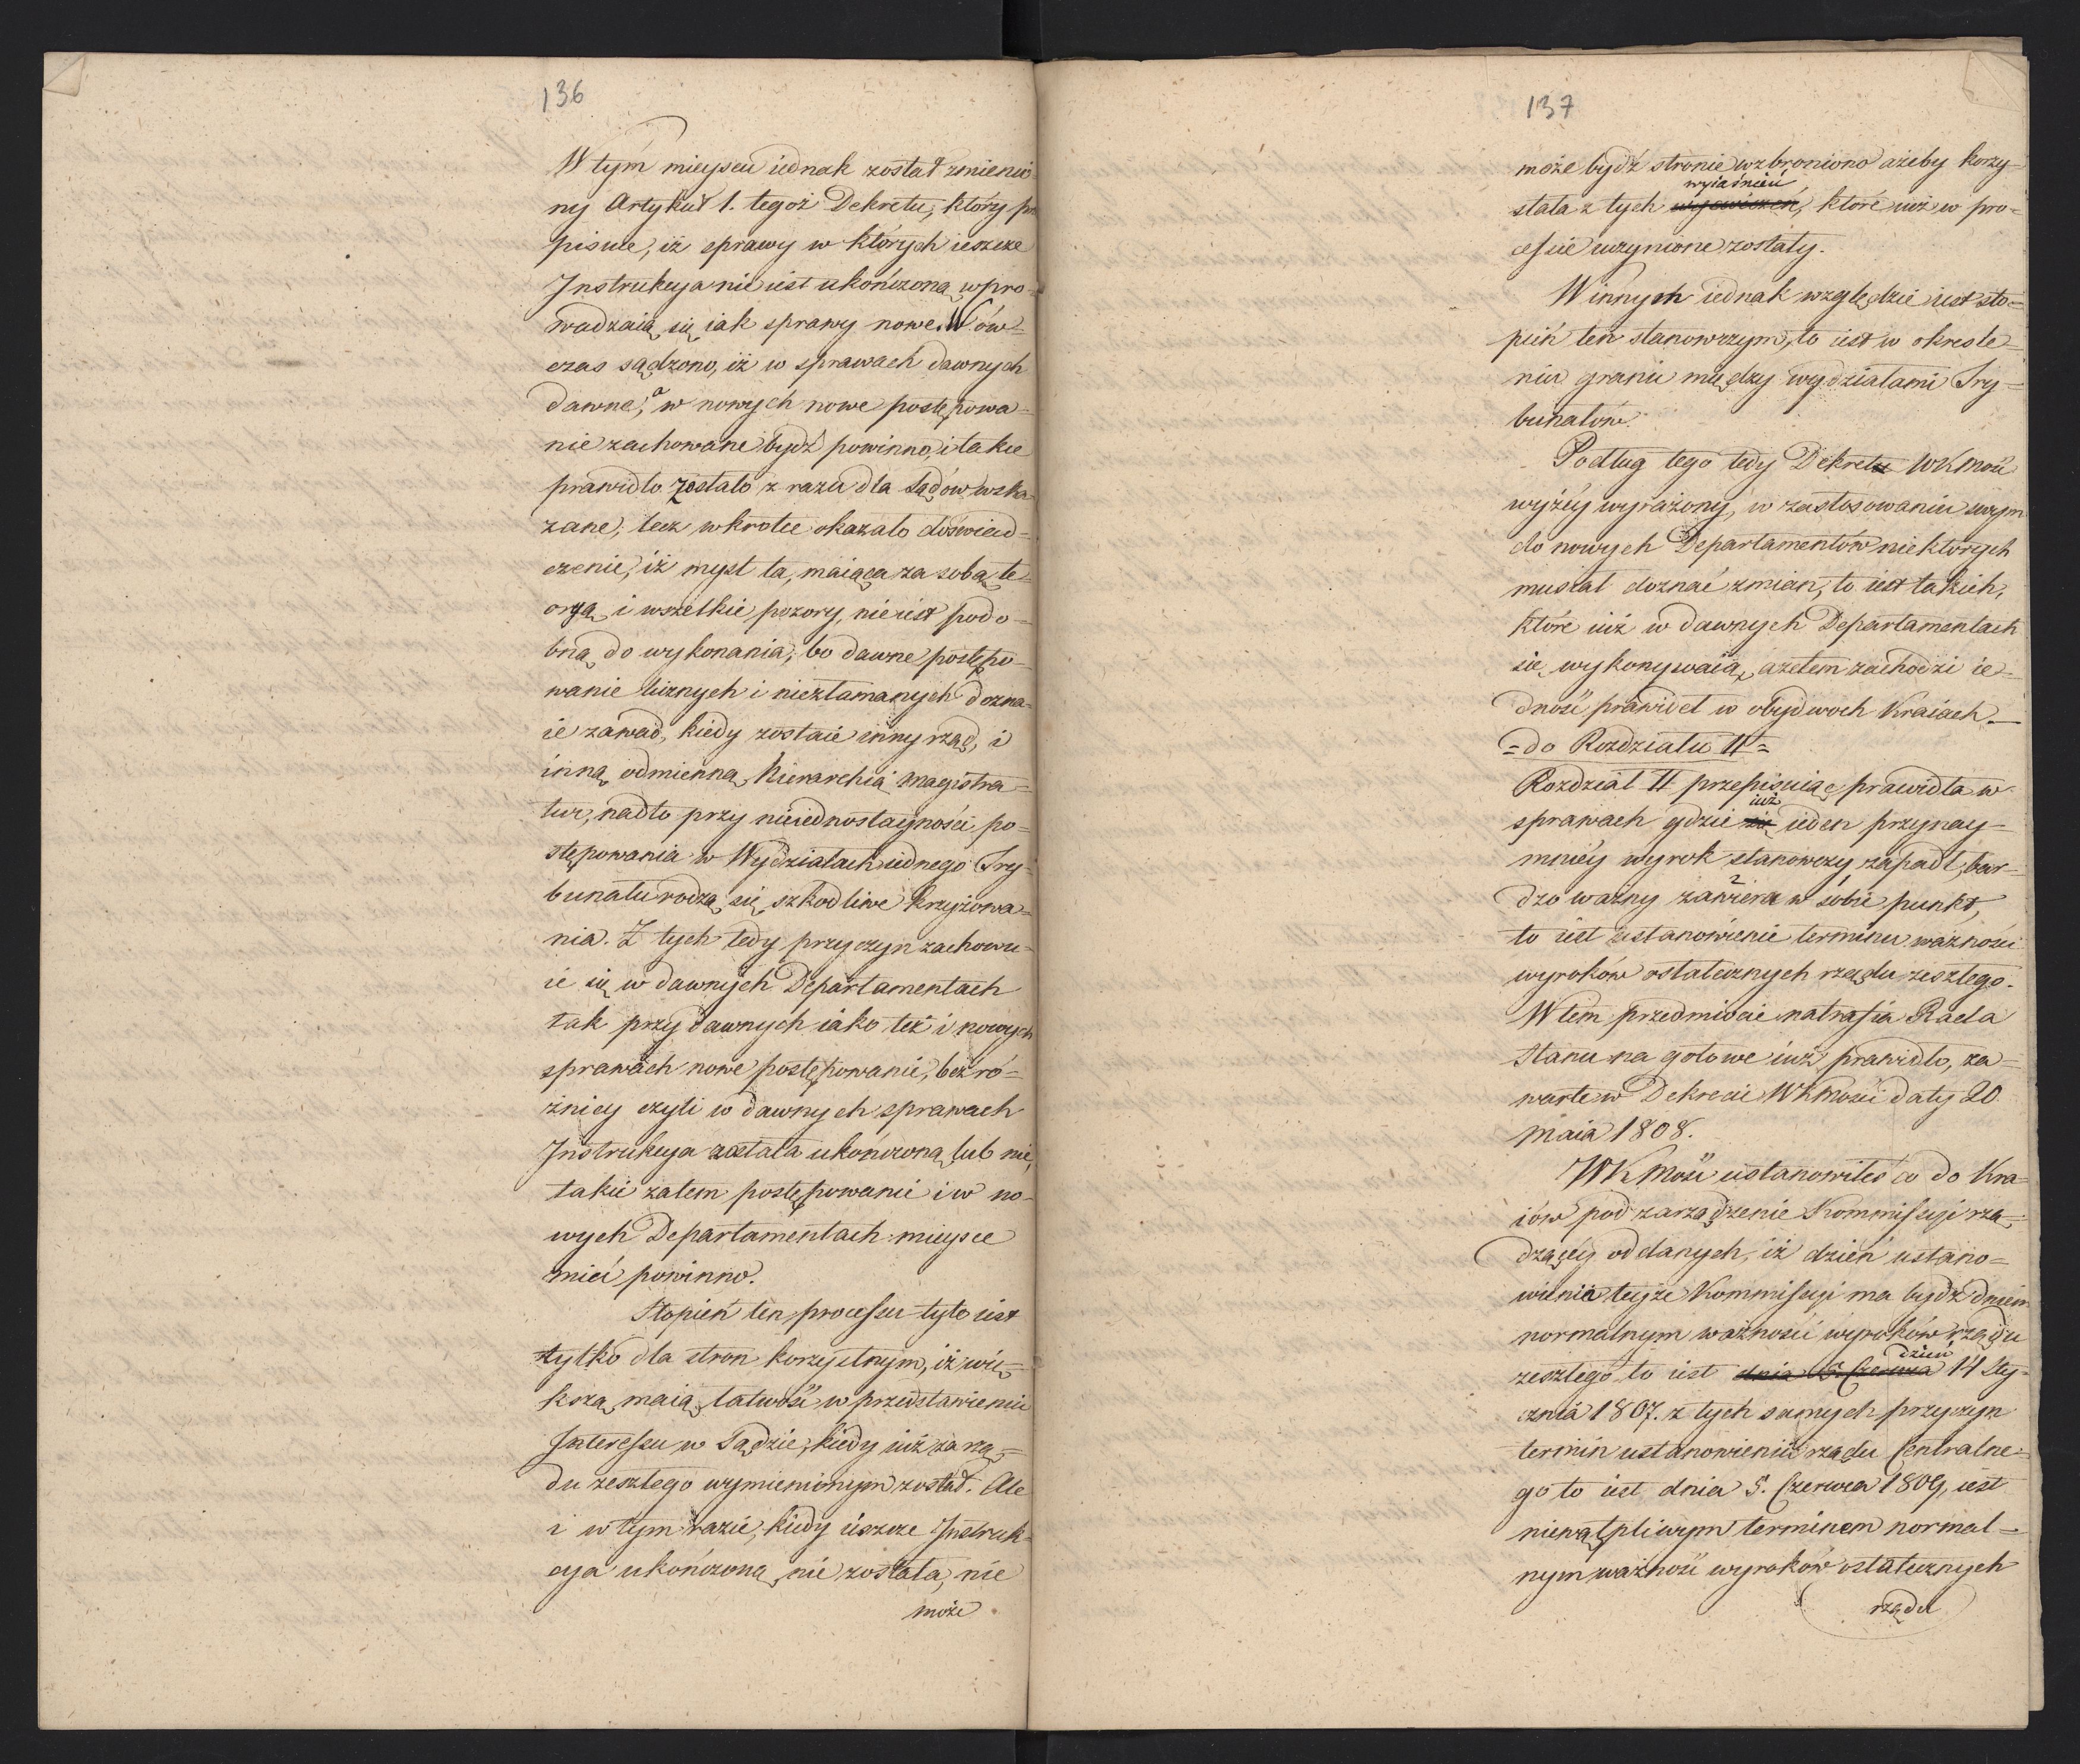 136
W tym mieyscu iednak został zmienio
ny Artykuł 1. tegoż Dekretu, który prze
pisuie, iż sprawy w których ieszcze
Instrukcya nie iest ukończoną wpro=
wadzaią się iak sprawy nowe. Wów=
czas sądzono, iż w sprawach dawnych
dawne, a w nowych nowe postępowa=
nie zachowane bydź powinno, i takie
prawidło zostało z razu dla Sądów wska=
zane, lecz wkrotce okazało doświad=
czenie, iż myśl ta, maiąca za sobą te=
oryą i wszelkie pozory, nie iest podo=
bną do wykonania, bo dawne postępo=
wanie licznych i niezłamanych dozna=
ie zawad, kiedy zostaie inny rząd, i
inną odmienną Hierarchia Magistra=
tur, nadto przy nieiednostayności po=
stępowania w Wydziałach iednego Try=
bunału rodzą się szkodliwe krzyżowa=
nia. Z tych tedy przyczyn zachowu=
ie się w dawnych Departamentach
tak przy dawnych iako też i nowych
sprawach nowe postępowanie, bez ró=
żnicy czyli w dawnych sprawach
Instrukcya została ukończoną lub nie,
takie zatem postępowanie i w no=
wych Departamentach mieysce
mieć powinno.
Stopień ten processu tyle iest
tylko dla stron korzystnym, iż wię=
kszą maią łatwość w przedstawieniu
Interessu w Sądzie, kiedy iuż za rzą=
du zeszłego wymienionym został. Ale
i w tym razie, kiedy ieszcze Instruk=
cya ukończoną nie została, nie
może
137
może bydź stronie wzbroniono ażeby korzy=
stała z tych wyiaśnień, które iuż w pro=
cessie uczynione zostały.
W innych iednak względzie iest sto=
pień ten stanowczym, to iest w określe=
niu granic między wydziałami Try=
bunałów.
Podług tego tedy Dekret WKMości
wyżéy wyrażony, w zastosowaniu swym
do nowych Departamentów niektórych
musiał doznać zmian, to iest takich,
które iuż w dawnych Departamentach
się wykonywaią, a zatem zachodzi ie=
dność prawideł w obydwoch Kraiach.
= do Rozdziału II =
Rozdział II przepisuiąc prawidła w
sprawach gdzie iuż ieden przynay=
mniéy wyrok stanowczy zapadł, bar=
dzo ważny zawiera w sobie punkt,
to iest ustanowienie terminu ważności
wyroków ostatecznych rządu zeszłego.
W tem przedmiocie natrafia Rada
Stanu na gotowe iuż prawidło, za=
warte w Dekrecie WKMości daty 20
Maia 1808.
WKMość ustanowiłeś co do Kra=
iów pod zarządzenie Kommissyi rzą=
dzącéy oddanych, iż dzień ustano=
wienia teyże Kommissyi ma bydź dniem
normalnym ważności wyroków rządu
zeszłego to iest dnia 5. Czerwca dzień 14 Sty=
cznia 1807. z tych samych przyczyn
termin ustanowienia rządu Centralne=
go to iest dnia 5. Czerwca 1809, iest
niewątpliwym terminem normal=
nym ważność wyroków ostatecznych
rządu